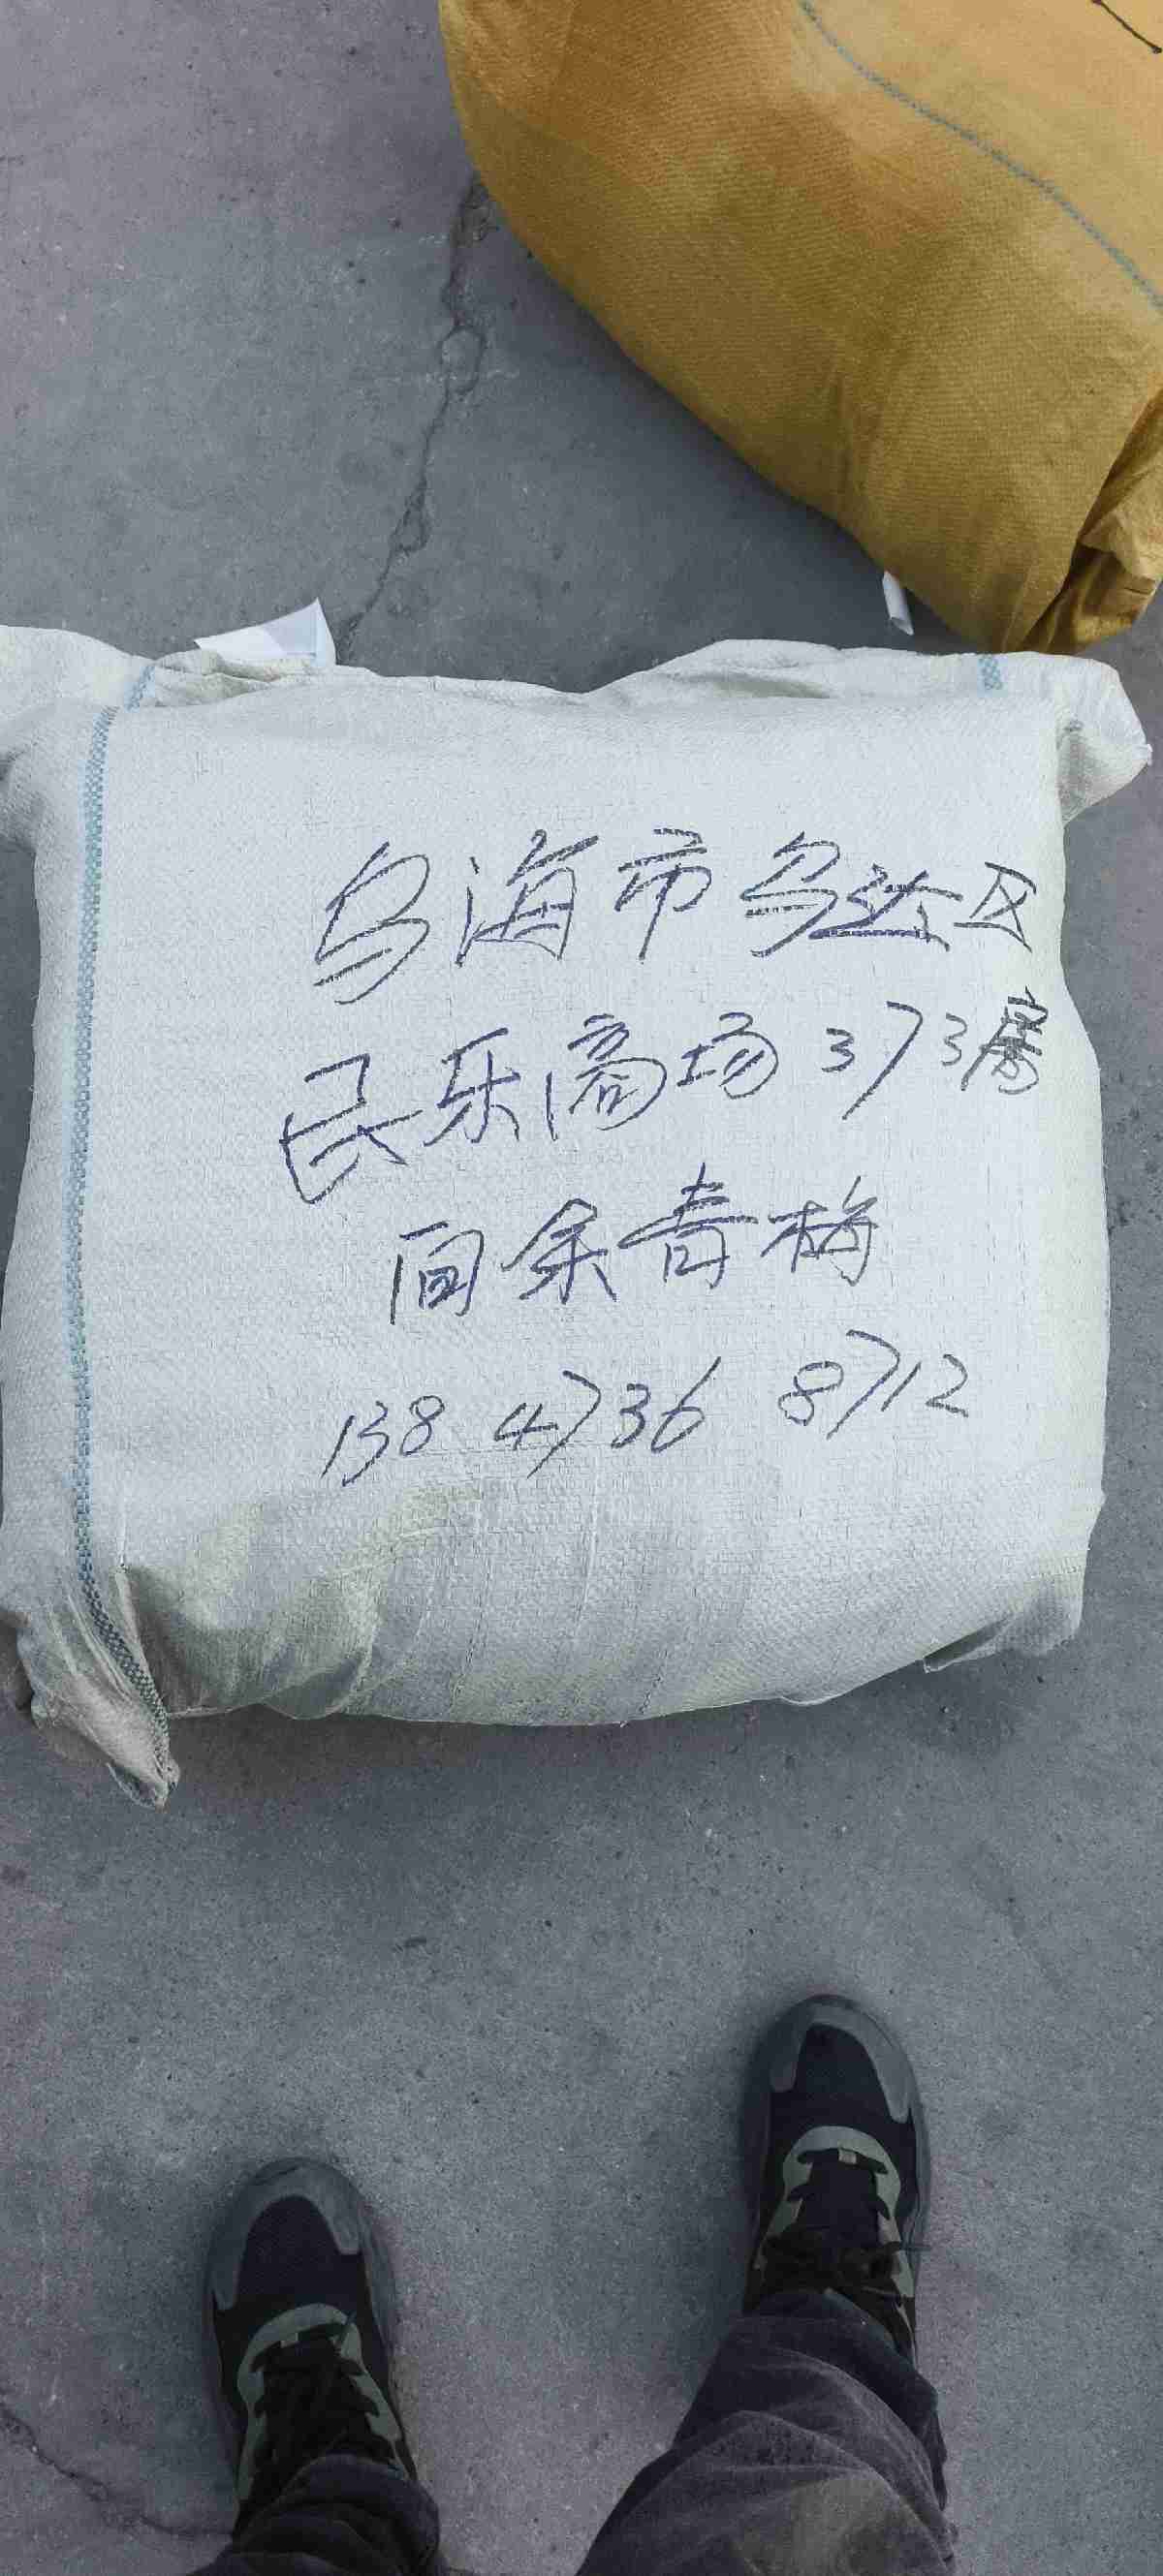 乌海市乌达区
民乐商场373房
间余青梅
138 4736 8712